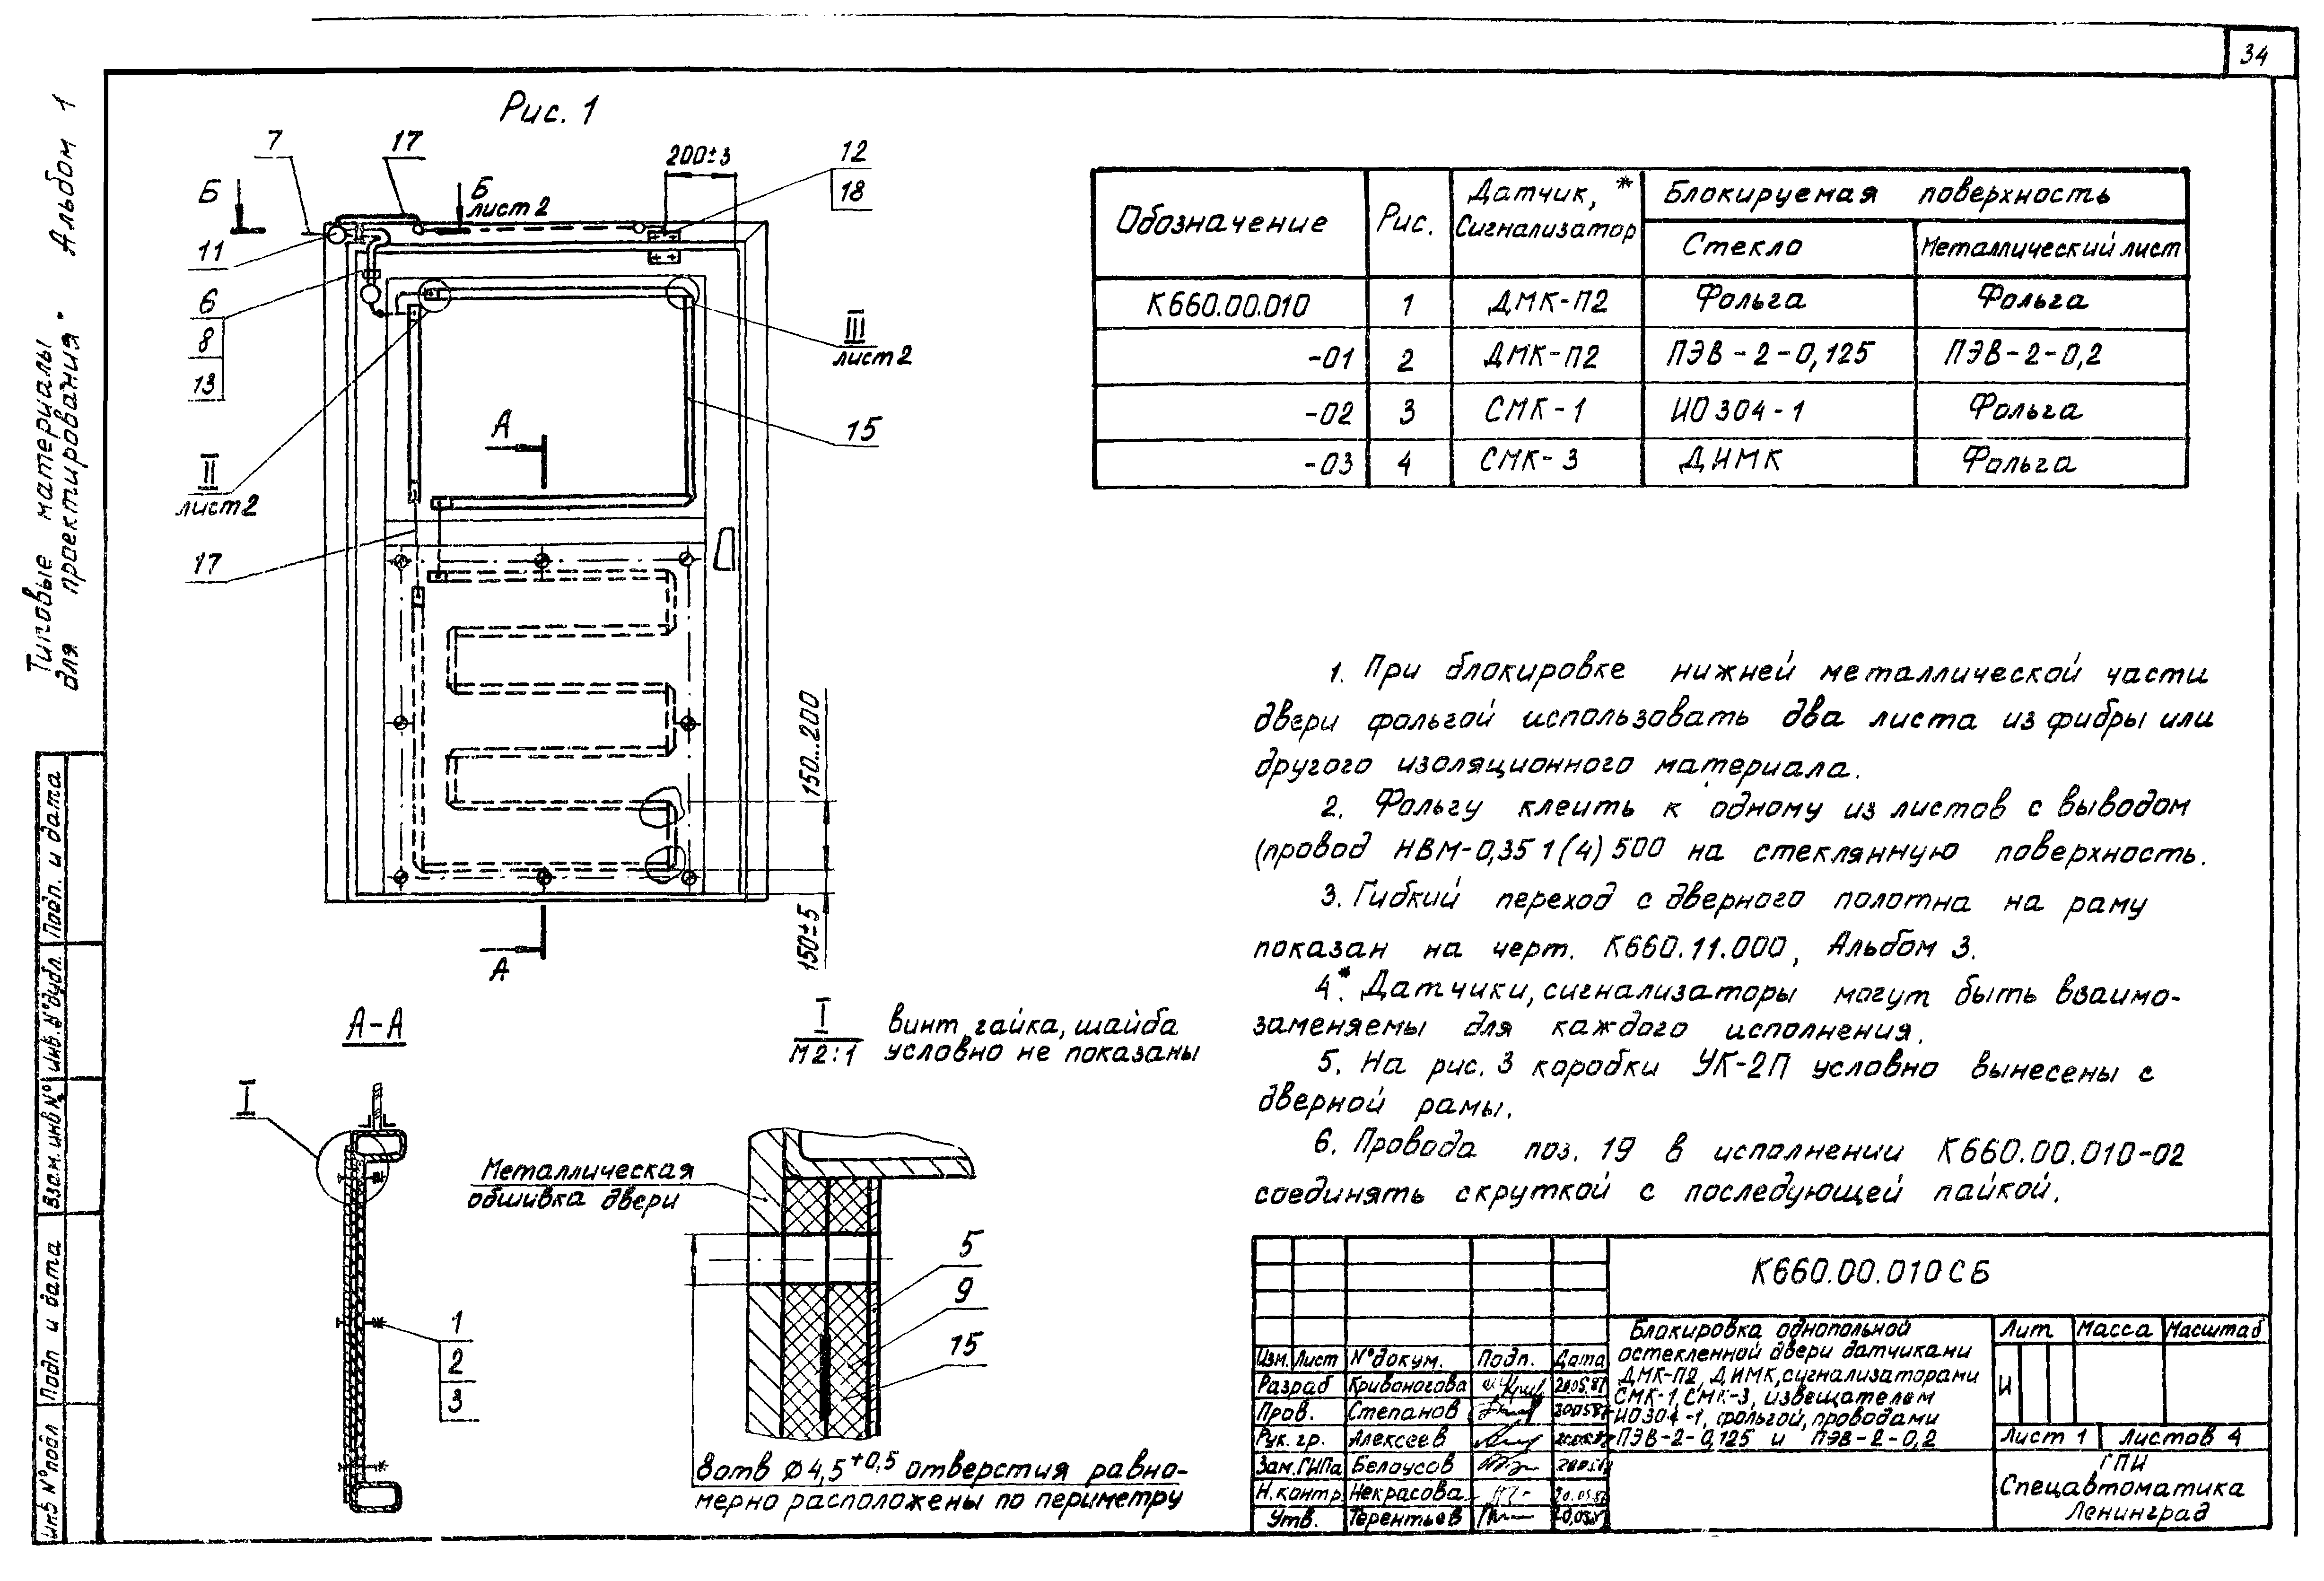 34
Альбом 1
Типовые материалы
для проектирования"
Рис. 1
7
17
200±3
12
18
Б
Б
лист 2
11
6
8
13
III
лист 2
15
А
II
лист 2
17
150..200
150±5
А
Обозначение
Рис.
Датчик, *
Сигнализатор
Блокируемая поверхность
Стекло
Металлический лист
К660.00.010 1 ДМК-П2 Фольга Фольга
-01 2 ДМК-П2 ПЭВ-2-0,125 ПЭВ-2-0,2
-02 3 СМК-1 ИО 304-1 Фольга
-03 4 СМК-3 ДИМК Фольга
1. При блокировке нижней металлической части
двери фольгой использовать два листа из фибры или
другого изоляционного материала.
2. Фольгу клеить к одному из листов с выводом
(провод НВМ-0,35 1(4) 500 на стеклянную поверхность.
3. Гибкий переход с дверного полотна на раму
показан на черт. К660.11.000, Альбом 3.
4.* Датчики, сигнализаторы могут быть взаимо-
заменяемы для каждого исполнения.
5. На рис. 3 коробки УК-2П условно вынесены с
дверной рамы.
6. Провода поз. 19 в исполнении К660.00.010-02
соединять скруткой с последующей пайкой.
А-А
I
I
М 2:1
винт, гайка, шайба
условно не показаны
Металлическая
обшивка двери
5
9
15
1
2
3
8отв ⌀4,5+0,5 отверстия равно-
мерно расположены по периметру
К660.00.010СБ
Блокировка однопольной
остекленной двери датчиками
ДМК-П2, ДИМК, сигнализаторами
СМК-1, СМК-3, извещателем
ИО304-1, фольгой, проводами
ПЭВ-2-0,125 и ПЭВ-2-0,2
Лит Масса Масштаб
И
Лист 1 Листов 4
ГПИ
Спецавтоматика
Ленинград
Изм. Лист №докум. Подп. Дата
Разраб Кривоногова 20.05.87
Пров. Степанов 20.05.87
Рук. гр. Алексеев
Зам.ГИПа Белоусов
Н.контр. Некрасова 20.05.87
Утв. Терентьев
Подп. и дата
Инв.№дубл.
Взам.инв№
Подп и дата
Инв №подл